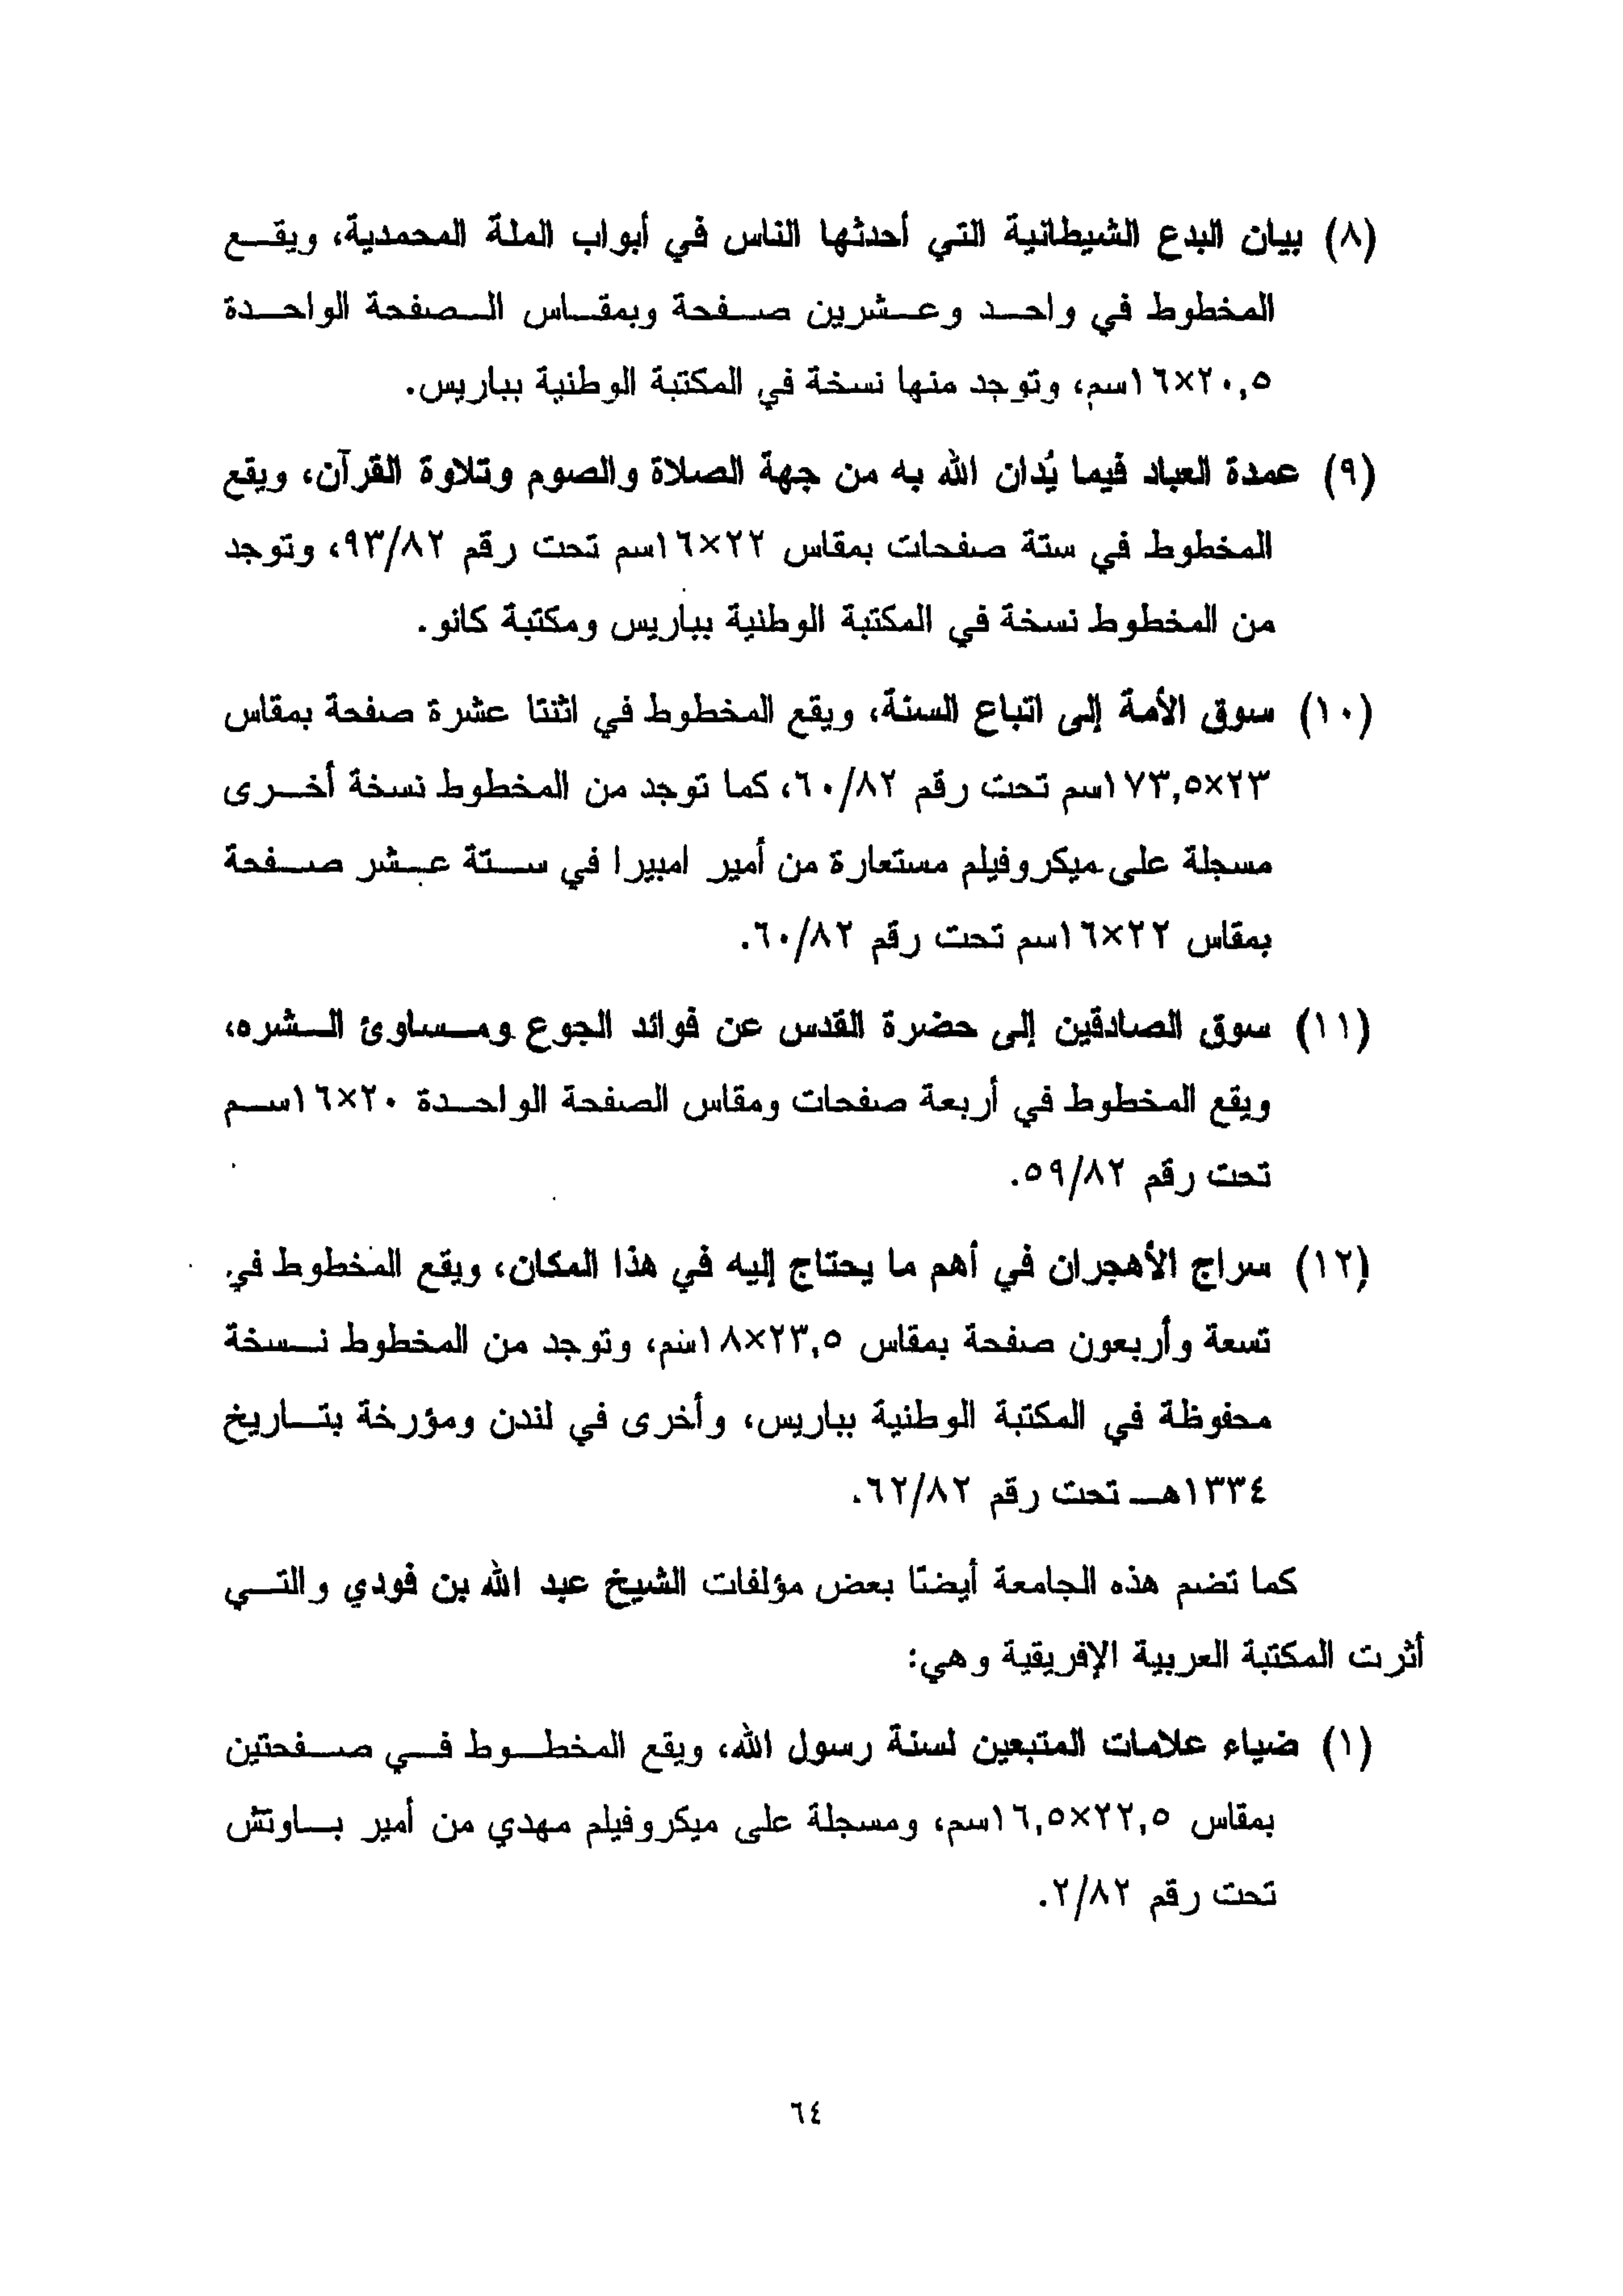 (٨) بيان البدع الشيطانية التي أحدثها الناس في أبواب الملة المحمدية، ويقع
المخطوط في واحد وعشرين صفحة وبمقاس الصفحة الواحدة
٢٠,٥×١٦سم، وتوجد منها نسخة في المكتبة الوطنية بباريس.
(٩) عمدة العباد فيما يُدان الله به من جهة الصلاة والصوم وتلاوة القرآن، ويقع
المخطوط في ستة صفحات بمقاس ٢٢×١٦سم تحت رقم ٩٣/٨٢، وتوجد
من المخطوط نسخة في المكتبة الوطنية بباريس ومكتبة كانو.
(١٠) سوق الأمة إلى اتباع السنة، ويقع المخطوط في اثنتا عشرة صفحة بمقاس
٢٣×١٧٣,٥سم تحت رقم ٦٠/٨٢، كما توجد من المخطوط نسخة أخرى
مسجلة على ميكروفيلم مستعارة من أمير امبيرا في ستة عشر صفحة
بمقاس ٢٢×١٦سم تحت رقم ٦٠/٨٢.
(١١) سوق الصادقين إلى حضرة القدس عن فوائد الجوع ومساوئ الشره،
ويقع المخطوط في أربعة صفحات ومقاس الصفحة الواحدة ٢٠×١٦سم
تحت رقم ٥٩/٨٢.
(١٢) سراج الأهجران في أهم ما يحتاج إليه في هذا المكان، ويقع المخطوط في
تسعة وأربعون صفحة بمقاس ٢٣,٥×١٨سم، وتوجد من المخطوط نسخة
محفوظة في المكتبة الوطنية بباريس، وأخرى في لندن ومؤرخة بتاريخ
١٣٣٤هـ تحت رقم ٦٢/٨٢.
كما تضم هذه الجامعة أيضًا بعض مؤلفات الشيخ عبد الله بن فودي والتي
أثرت المكتبة العربية الإفريقية وهي:
(١) ضياء علامات المتبعين لسنة رسول الله، ويقع المخطوط في صفحتين
بمقاس ٢٢,٥×١٦,٥سم، ومسجلة على ميكروفيلم مهدي من أمير باوتش
تحت رقم ٢/٨٢.
٦٤